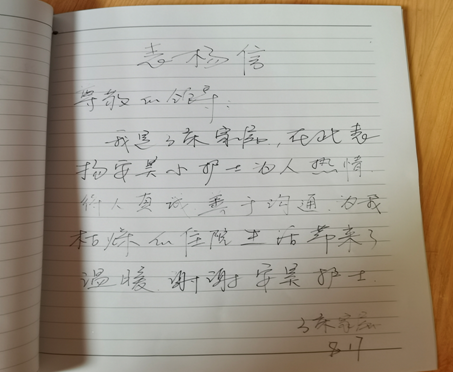 表杨信
尊敬的领导：
我是3床家属，在此表
扬安昊小护士为人热情
待人真诚 善于沟通 为我
枯燥的住院生活带来了
温暖 谢谢安昊护士
3床家属
8.17